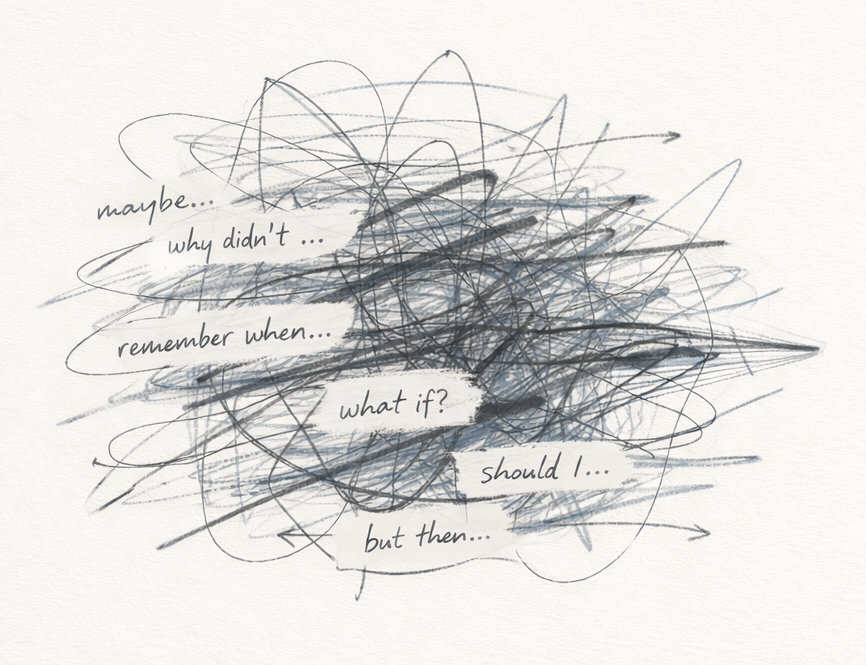 maybe...
why didn't ...
remember when...
what if?
should I...
but then...